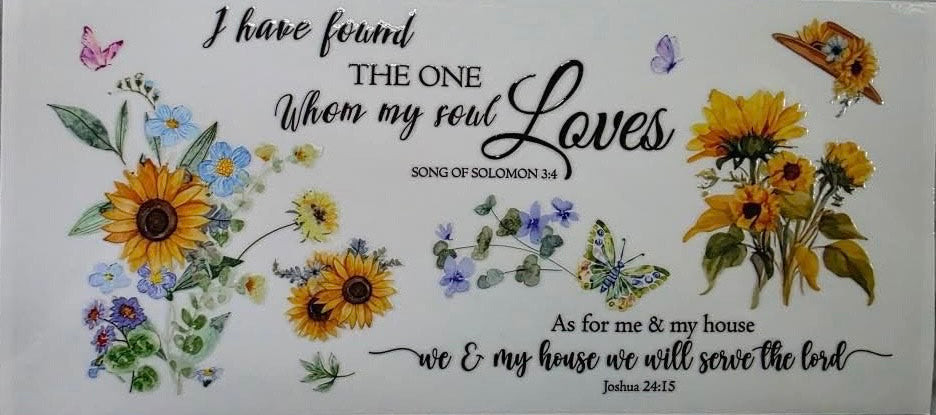 I have found
THE ONE
Whom my soul Loves
SONG OF SOLOMON 3:4
As for me & my house
we & my house we will serve the lord
Joshua 24:15